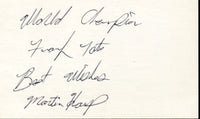 World Champion
Frank Tate
Best Wishes
Martin Karp